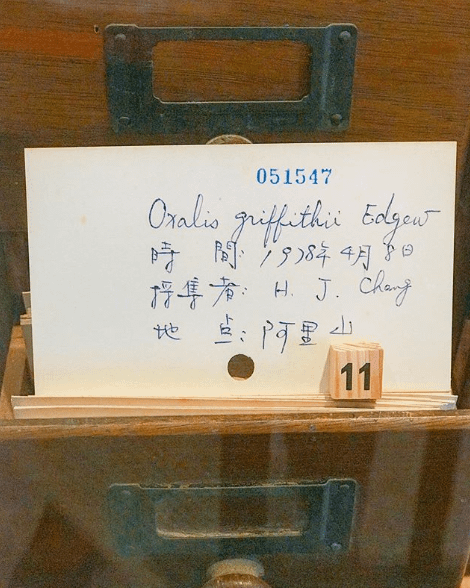 051547
Oxalis griffithii Edgew
時 間: 1978年4月8日
採集者: H. J. Chang
地 点: 阿里山
11